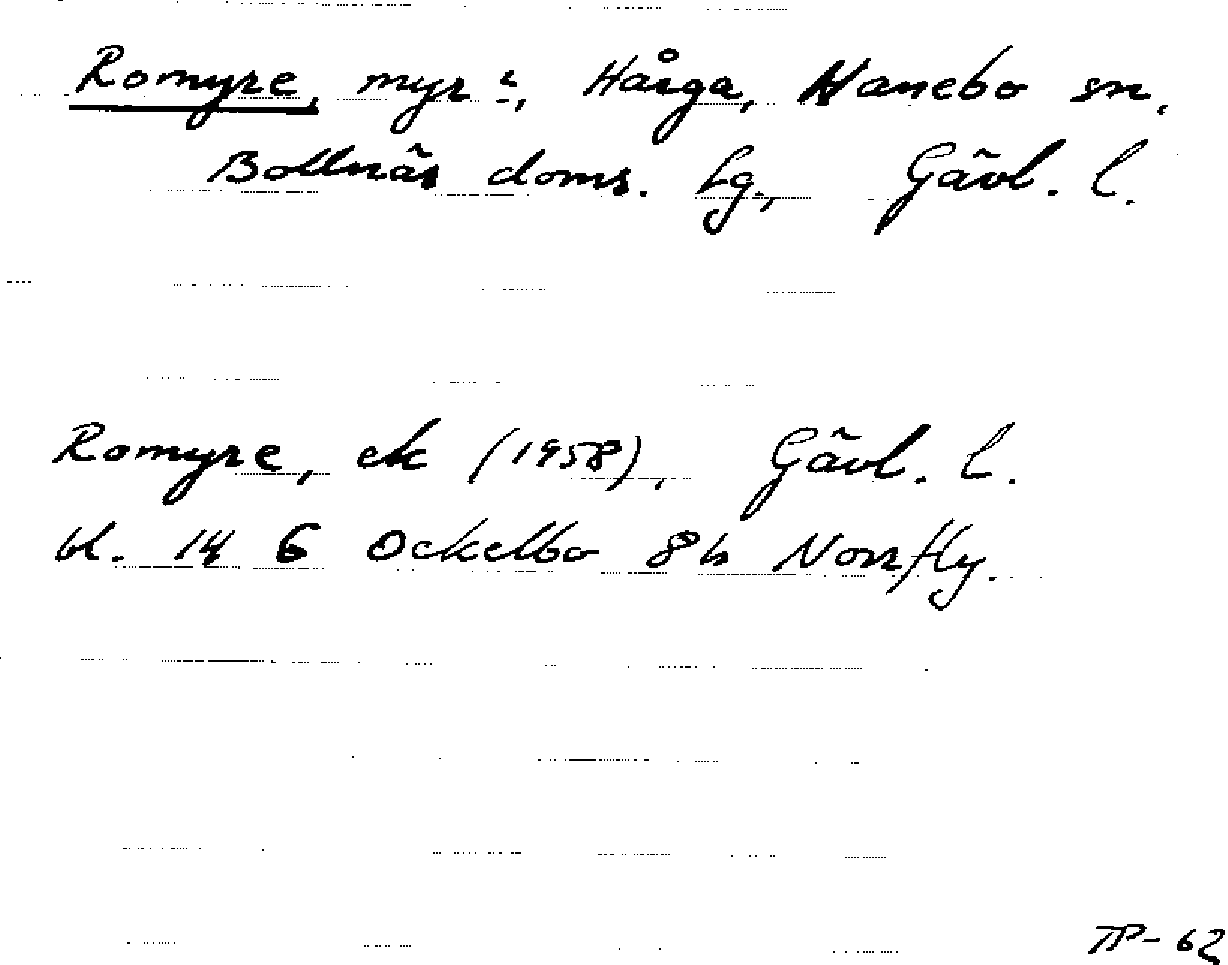 Romyre, myr ?, Hårga, Hanebo sn.
Bollnäs doms. lg., Gävl. l.
Romyre, ek (1958), Gävl. l.
bl. 14 G Ockelbo 8h Norrfly.
TP-62